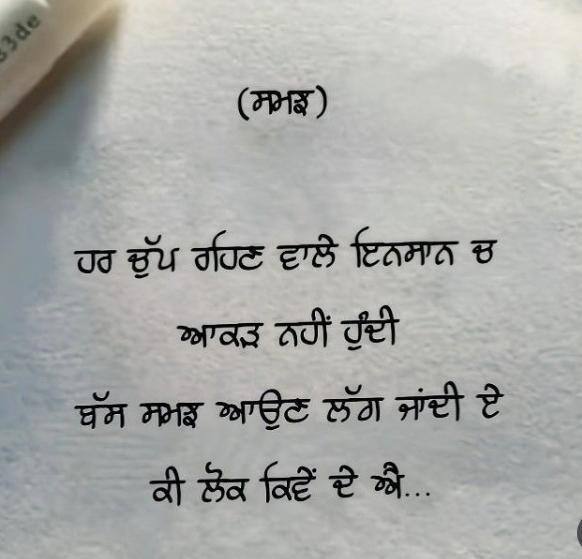 33de
(ਸਮਝ)
ਹਰ ਚੁੱਪ ਰਹਿਣ ਵਾਲੇ ਇਨਸਾਨ ਚ
ਆਕੜ ਨਹੀਂ ਹੁੰਦੀ
ਬੱਸ ਸਮਝ ਆਉਣ ਲੱਗ ਜਾਂਦੀ ਏ
ਕੀ ਲੋਕ ਕਿਵੇਂ ਦੇ ਐ...